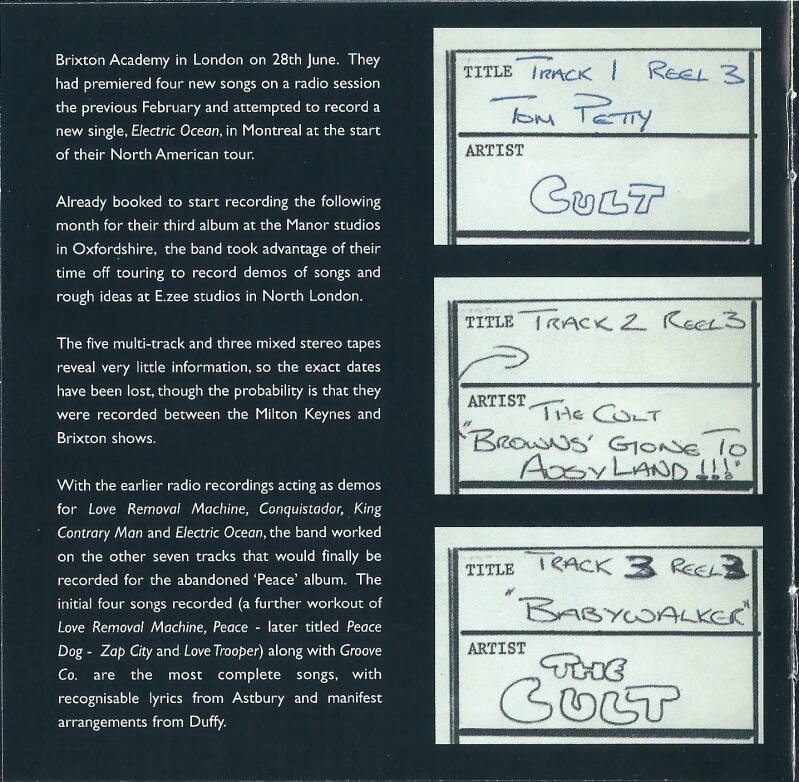 Brixton Academy in London on 28th June. They
had premiered four new songs on a radio session
the previous February and attempted to record a
new single, Electric Ocean, in Montreal at the start
of their North American tour.
Already booked to start recording the following
month for their third album at the Manor studios
in Oxfordshire, the band took advantage of their
time off touring to record demos of songs and
rough ideas at E.zee studios in North London.
The five multi-track and three mixed stereo tapes
reveal very little information, so the exact dates
have been lost, though the probability is that they
were recorded between the Milton Keynes and
Brixton shows.
With the earlier radio recordings acting as demos
for Love Removal Machine, Conquistador, King
Contrary Man and Electric Ocean, the band worked
on the other seven tracks that would finally be
recorded for the abandoned 'Peace' album. The
initial four songs recorded (a further workout of
Love Removal Machine, Peace - later titled Peace
Dog - Zap City and Love Trooper) along with Groove
Co. are the most complete songs, with
recognisable lyrics from Astbury and manifest
arrangements from Duffy.
TITLE TRACK 1 REEL 3
TOM PETTY
ARTIST
CULT
TITLE TRACK 2 REEL 3
ARTIST THE CULT
"BROWNS' GONE TO
LAND!!!"
TITLE TRACK 3 REEL 3
"BABYWALKER"
ARTIST
THE
CULT